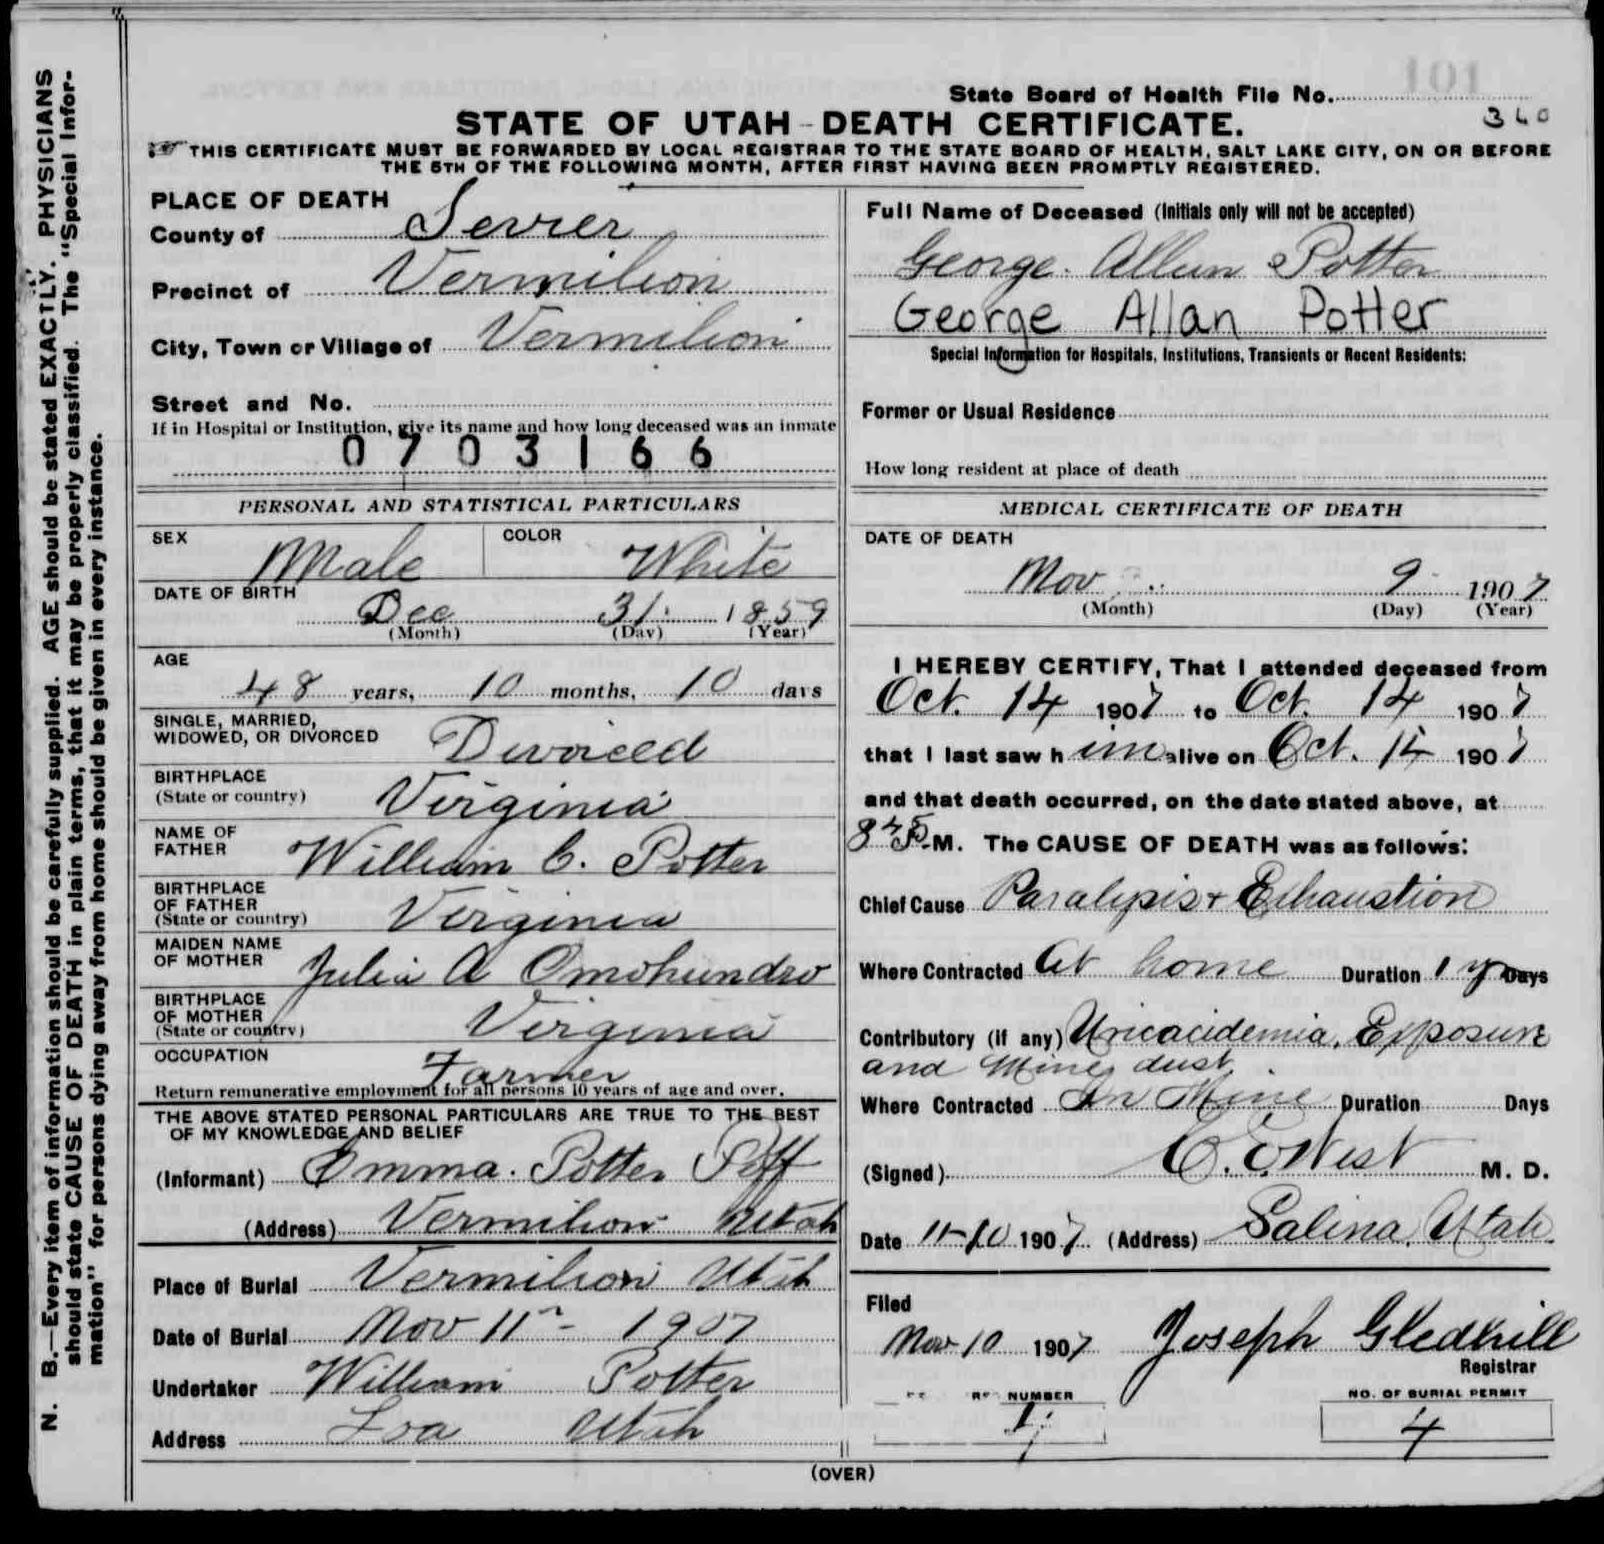 State Board of Health File No.
360
STATE OF UTAH - DEATH CERTIFICATE.
THIS CERTIFICATE MUST BE FORWARDED BY LOCAL REGISTRAR TO THE STATE BOARD OF HEALTH, SALT LAKE CITY, ON OR BEFORE
THE 5TH OF THE FOLLOWING MONTH, AFTER FIRST HAVING BEEN PROMPTLY REGISTERED.
N. B.—Every item of information should be carefully supplied. AGE should be stated EXACTLY. PHYSICIANS
should state CAUSE OF DEATH in plain terms, that it may be properly classified. The "Special Infor-
mation" for persons dying away from home should be given in every instance.
PLACE OF DEATH
County of Sevier
Precinct of Vermilion
City, Town or Village of Vermilion
Street and No.
If in Hospital or Institution, give its name and how long deceased was an inmate
0703166
PERSONAL AND STATISTICAL PARTICULARS
SEX Male COLOR White
DATE OF BIRTH
Dec 31 1859
(Month) (Day) (Year)
AGE
48 years, 10 months, 10 days
SINGLE, MARRIED,
WIDOWED, OR DIVORCED Divorced
BIRTHPLACE
(State or country) Virginia
NAME OF
FATHER William C. Potter
BIRTHPLACE
OF FATHER
(State or country) Virginia
MAIDEN NAME
OF MOTHER Julia A Omohundro
BIRTHPLACE
OF MOTHER
(State or country) Virginia
OCCUPATION Farmer
Return remunerative employment for all persons 10 years of age and over.
THE ABOVE STATED PERSONAL PARTICULARS ARE TRUE TO THE BEST
OF MY KNOWLEDGE AND BELIEF
(Informant) Emma Potter Poff
(Address) Vermilion Utah
Place of Burial Vermilion Utah
Date of Burial Nov 11 1907
Undertaker William Potter
Address Loa Utah
Full Name of Deceased (Initials only will not be accepted)
George Allen Potter
George Allan Potter
Special Information for Hospitals, Institutions, Transients or Recent Residents:
Former or Usual Residence
How long resident at place of death
MEDICAL CERTIFICATE OF DEATH
DATE OF DEATH
Nov 9 1907
(Month) (Day) (Year)
I HEREBY CERTIFY, That I attended deceased from
Oct. 14 1907 to Oct. 14 1907
that I last saw him alive on Oct. 14 1907
and that death occurred, on the date stated above, at
8 45 P.M. The CAUSE OF DEATH was as follows:
Chief Cause Paralysis + Exhaustion
Where Contracted At home Duration 1 y Days
Contributory (if any) Uricacidemia, Exposure
and Mine dust.
Where Contracted In Mine Duration Days
(Signed) C. E. West M. D.
Date 11-10 1907 (Address) Salina, Utah
Filed
Nov 10 1907 Joseph Gledhill
Registrar
NUMBER
NO. OF BURIAL PERMIT
4
(OVER)